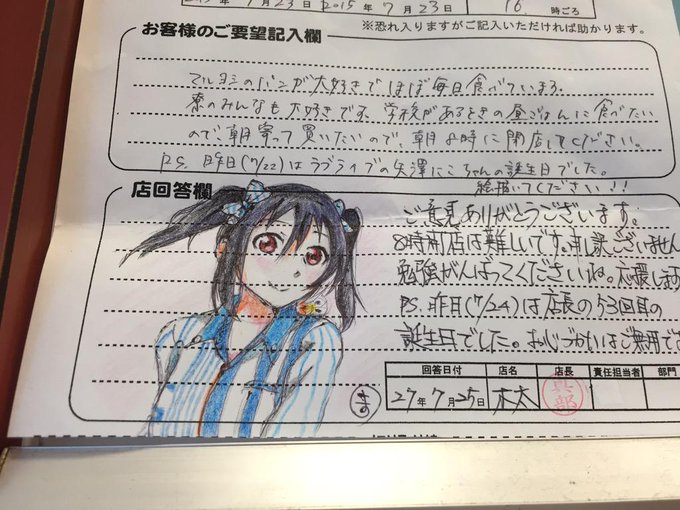 7月23日 2015年 7月23日 16時ごろ
※恐れ入りますがご記入いただければ助かります。
お客様のご要望記入欄
マルヨシのパンが大好きでほぼ毎日食べています。
寮のみんなも大好きです。学校があるときの昼ごはんに食べたい
ので、朝寄って買いたいので、朝8時に開店してください。
P.S. 昨日(7/22)はラブライブの矢澤にこちゃんの誕生日でした。
絵描いてください!!
店回答欄
ご意見ありがとうございます。
8時開店は難しいです。申し訳ございません
勉強がんばってくださいね。応援します
P.S. 昨日(7/24)は店長の53回目の
誕生日でした。おこづかいはご無用です
回答日付 店名 店長 責任担当者 部門
27年7月25日 木太